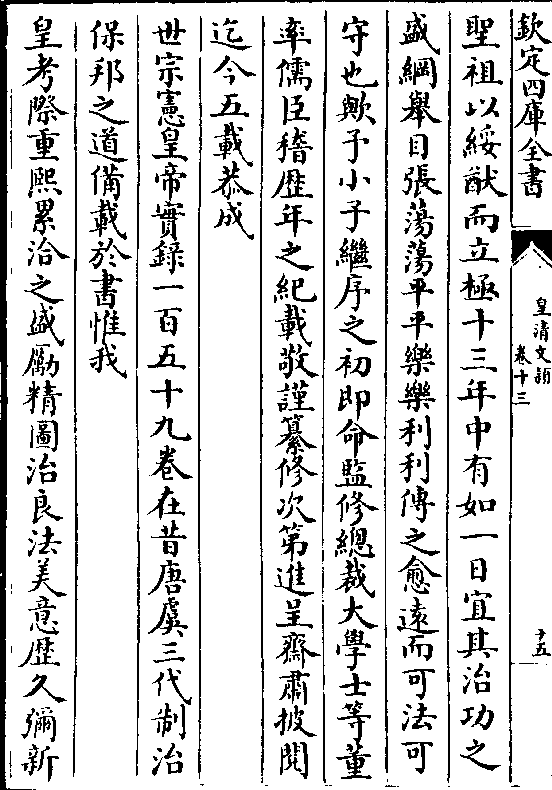 欽定四庫全書
皇清文頴
卷十三
十五
聖祖以綏猷而立極十三年中有如一日宜其治功之
盛綱舉目張蕩蕩平平樂樂利利傳之愈遠而可法可
守也歟予小子繼序之初即命監修總裁大學士等董
率儒臣稽歴年之紀載敬謹纂修次第進呈齋肅披閱
迄今五載恭成
世宗憲皇帝實錄一百五十九卷在昔唐虞三代制治
保邦之道備載於書惟我
皇考際重熙累洽之盛勵精圖治良法美意歴久彌新